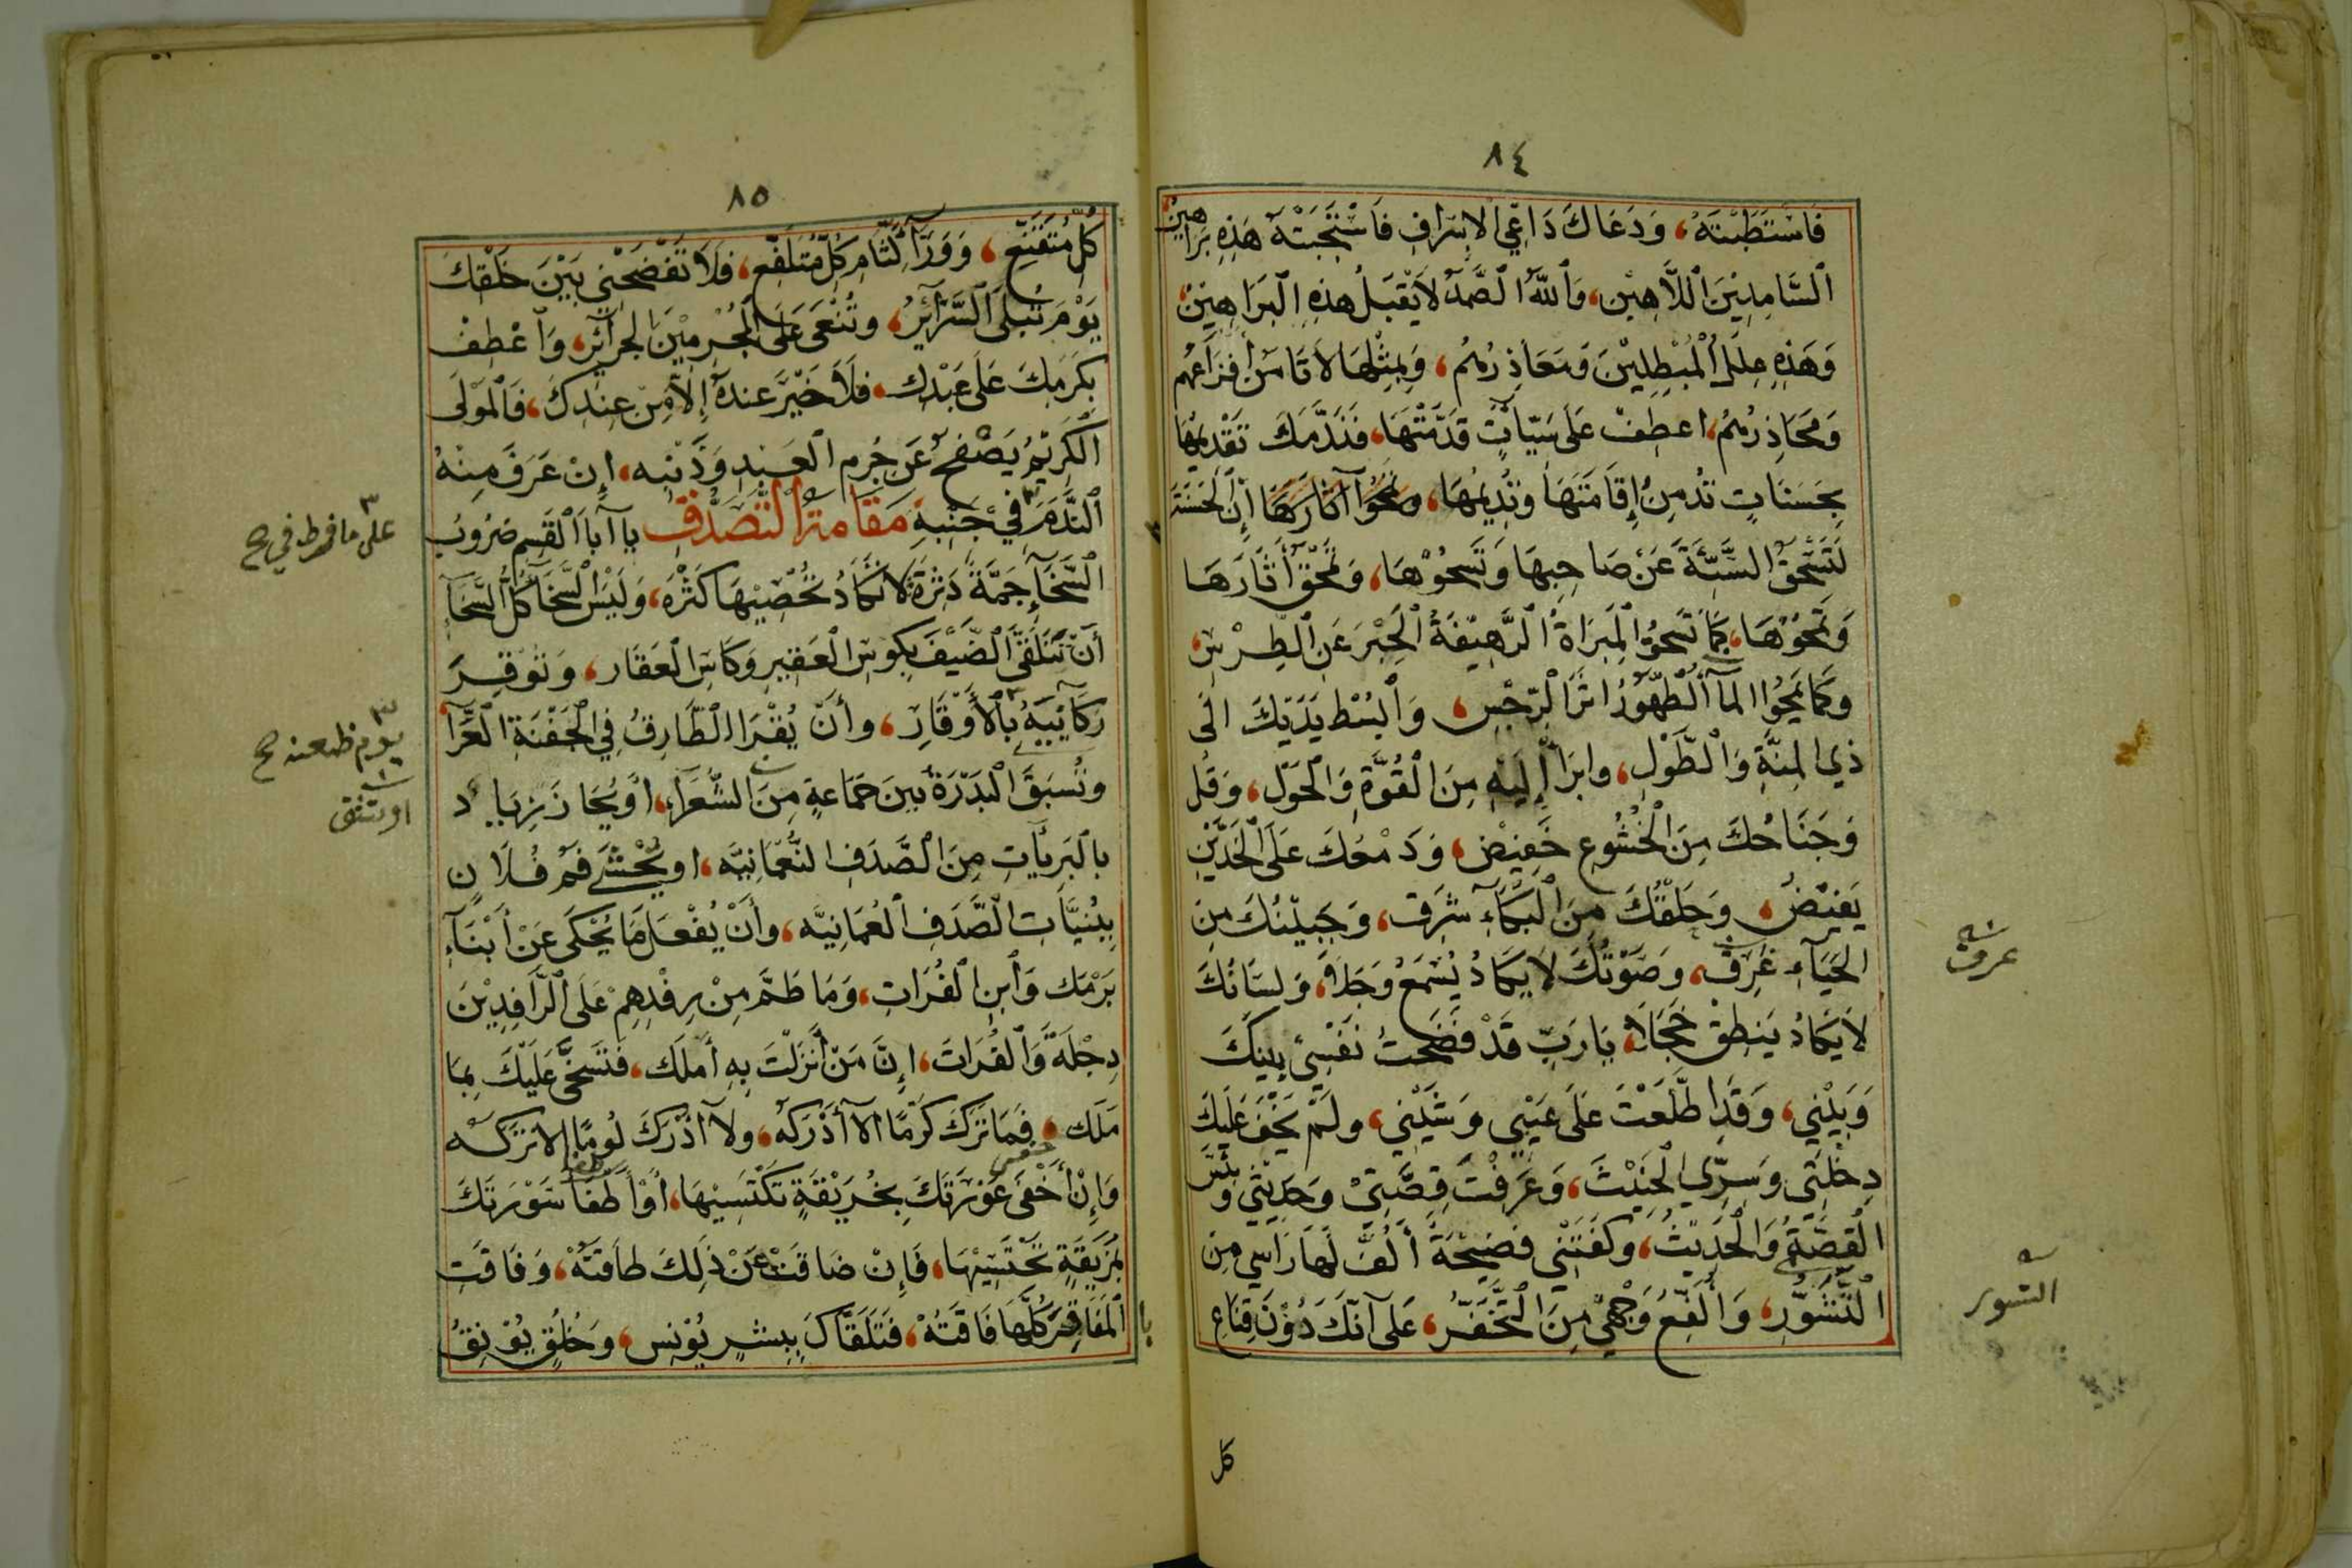 ٨٤
فَاسْتَطَبْتَهُ، وَدَعَاكَ دَاعِي الاِسْرَافِ فَاسْتَجَبْتَهُ هَذِهِ بَرَاهِينُ
السَّامِدِيْنَ اللَّاهِيْن، وَاللهُ الصَّمَدُ لاَيَقْبَلُ هذِهِ الْبَرَاهِيْنَ،
وَهَذِهِ عِلَلُ الْمُبْطِلِيْنَ وَمَعَاذِرُهُمْ، وَبِمِثْلِهَا لاَتَأمَنُ أَفْزَاعُهُم
وَمَحَاذِرُهُمْ، اعطِفْ عَلَى سَيِّئاتٍ قَدَّمْتَهَا، فَنَدَّمَكَ تَقْدِيْمُهَا
بِحَسَنَاتٍ تُدمِنُ إِقَامَتَهَا وتُدِيْمُهَا، ومَحْوُ آثَارَهَا إِنَّ الْحَسَنَةَ
لَتَسْحَقُ السَّيِّئَةَ عَنْ صَاحِبِهَا وَتَسْحُوْهَا، وَتَمْحَقُ أَثَارَهَا
وَتَمْحُوْهَا، كَمَا تَسحُو الْمِبْرَاةُ الرَّهِيْفَةُ الْحِبْرَ عَنِ الطِّرْسِ،
وكَمَا يَمْحُوا المآءُ الطَّهُوْرُ اثَرَ الرِّجْسِ، وَابْسُطْ يَدَيْكَ الَى
ذِي المِنَّةِ وَالطَّوْلِ، وابرَأ إِلَيْهِ مِنَ الْقُوَّةِ وَالْحَوْلِ، وَقُل
وَجَنَاحُكَ مِنَ الْخُشُوعِ خَفِيْضٌ، وَدَمْعُكَ عَلَى الْخَدَّيْنِ
يَفِيْضُ، وَحَلْقُكَ مِنَ الْبُكَآءِ شَرِقٌ، وَجَبِيْنُكَ مِنَ
الحَيَآءِ غَرِقٌ، وَصَوْتُكَ لاَيَكَادُ يُسْمَعُ وَجَلاً، وَلِسَانُكَ
لاَيَكَادُ يَنطِقُ خَجَلاً، يَارَبِّ قَدْ فَضَحْتُ نَفْسِيْ بينكَ
وَبَيْنِي، وَقَدِ اطَّلَعْتَ عَلَى عَيْبِي وَشَيْنِي، ولَمْ يَخْفَ عَلَيكَ
دِخْلَتِي وَسِرِّي الْخَبِيْثَ، وَعَرَفْتَ قِصَّتِيْ وحَدِيْثِي وبِئْسَ
القِصَّةُ وَالْحَدِيْثُ، وكَفَتْنِي فضِيْحَةً أَلُفُّ لَهَا رَاسِي مِنَ
التَّشَوُّرِ، وَالَفِّعُ وَجْهِيْ مِنَ التَّخَفُّرِ، عَلَى اَنَّكَ دُوْنَ قِنَاعِ
عرق
التسور
كل
٨٥
كُلِّ مُتَقَنِّعٍ، وَوَرَآءَ لِثَامِ كُلِّ مُتَلَفِّعٍ، فَلَا تَفْضَحْنِي بَيْنَ خَلْقِكَ
يَوْمَ تُبْلَى السَّرَآئِرُ، وتُنْعَى عَلَى الْمُجْرِمِيْنَ الجَرآئِرُ، وَاعْطِفْ
بِكَرَمِكَ عَلَى عَبْدِكَ، فَلَا خَيْرَ عِندهُ إلاَّ مِنْ عِنْدِكَ، فَالْمَوْلَى
الكَرِيْمُ يَصْفَحُ عَنْ جُرمِ العَبْدِ وَذَنْبِه، إِنْ عَرَفَ مِنْهُ
النَّدَمَ فِيْ جَنْبِهِ مَقَامَةُ التَّصَدُّقِ يا اَبَا الْقَسِمِ ضُرُوبُ
السَّخَآءِ جَمَّةٌ دَثِرَة لَا تَكَادُ تُحْصِيْهَا كَثْرَه، وَلَيْسَ السَّخَا كُلُّ السَّخَآ
أَنْ تَتَلَقَّى الضَّيْفَ بِكوسِ العَقِيرِ وَكَاسِ العَقَار، وَتُوْقِرَ
رَكَآئِبَهُ بِالأَوْقَارِ، وأَنْ يُقْرَا الطَّارِقُ فِي الْجَفْنَةِ الغَرَّا،
وتُسبَقَ البَدْرَةُ بين جَمَاعةٍ مِنَ الشُّعَرَآءِ، اَوْيُجَازَ زِيَاد
بالبَرِيآتِ مِنَ الصَّدَفِ النُّعْمَانِيَّه، او يُحْشَى فَمُ فُلاَنٍ
بِبُنَيَّاتِ الصَّدَفِ العُمَانِيَّه، وأَنْ يُفْعَلَ مَا يُحْكَى عَنْ أَبْنَآءِ
بَرْمَك وَابنِ الفُرَاتِ، وَمَا طَمَّ مِنْ رِفْدِهِمْ عَلَى الرَّافِدِيْنَ
دِجْلَةَ وَالْفُرَاتَ، إنَّ مَنْ أَنْزَلْتَ بِهِ أَمَلَك، فَتَسَخَّى عَلَيْكَ بِمَا
مَلَك، فَمَا تَرَكَ كَرَمًا الاَّ أَدْرَكَهُ، ولآ ادْرَكَ لُومًا إلاتَرَكَه
وَإنْ أَخْفَى عَوْرَتَكَ بِخُرَيْقَةٍ تَكْتَسِيْهَا، أَوْأطْفَأَ سَوْرَتَكَ
بِمُزَيْقَةٍ تَحْتَسِيْهَا، فَإنْ ضَاقَتْ عَنْ ذلِكَ طَاقَتَهُ، وَفَاقَتِ
المَفَاقِرَ كُلَّهَا فَاقَتُهُ، فَتَلَقَّاكَ بِبِشْرٍ يُوْنِس، وَخُلُقٍ يُوْنِقُ
على مافرط في صح
يوم ظعنه صح